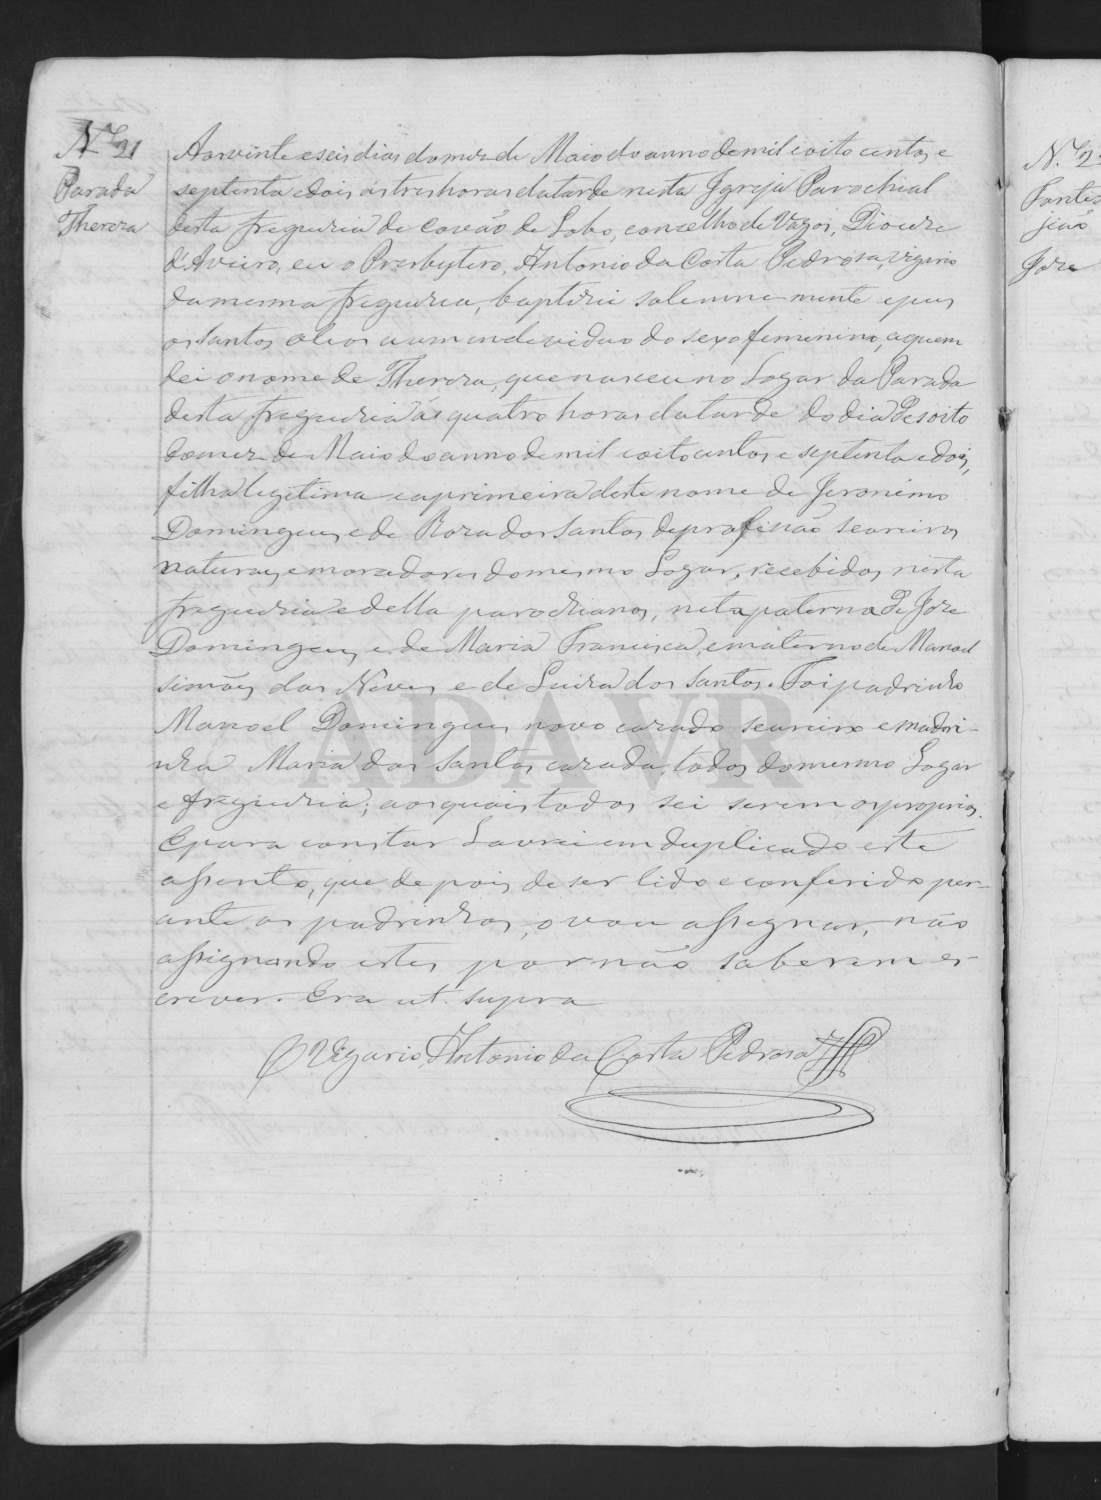 Nº 21
Parada
Thereza
Aos vinte e seis dias do mez de Maio do anno de mil e oito centos e
septenta e dois ás tres horas da tarde nesta Igreja Parochial
desta freguezia de Covão do Lobo, concelho de Vagos, Diocese
d'Aveiro, eu o Presbytero, Antonio da Costa Pedrosa, vigario
da mesma freguezia, baptizei solemne mente e puz
os Santos oleos a um individuo do sexo femenino, a quem
dei o nome de Thereza, que nasceu no Logar da Parada
desta freguezia ás quatro horas da tarde do dia desoito
do mez de Maio do anno de mil e oito centos e septenta e dois,
filha legitima e a primeira deste nome de Jeronimo
Domingues e de Roza dos Santos de profissão seareiros
naturaes e moradores do mesmo Logar, recebidos nesta
freguezia e della parochianos, neta paterna de Joze
Domingues e de Maria Francisca, e materno de Manoel
simões das Neves e de Luiza dos Santos. Foi padrinho
Manoel Domingues novo cazado seareiro e madri-
nha Maria dos Santos cazada, todos do mesmo Logar
e freguezia; aos quais todos sei serem os proprios.
E para constar Lavrei em duplicado este
assento, que de pois de ser lido e conferido per-
ante os padrinhos, o vou assegnar, não
assignando estes por não saberem es-
crever. Era ut supra
O Vigario Antonio da Costa Pedrosa
ADAVR
N.º 2
Fontes
Joze